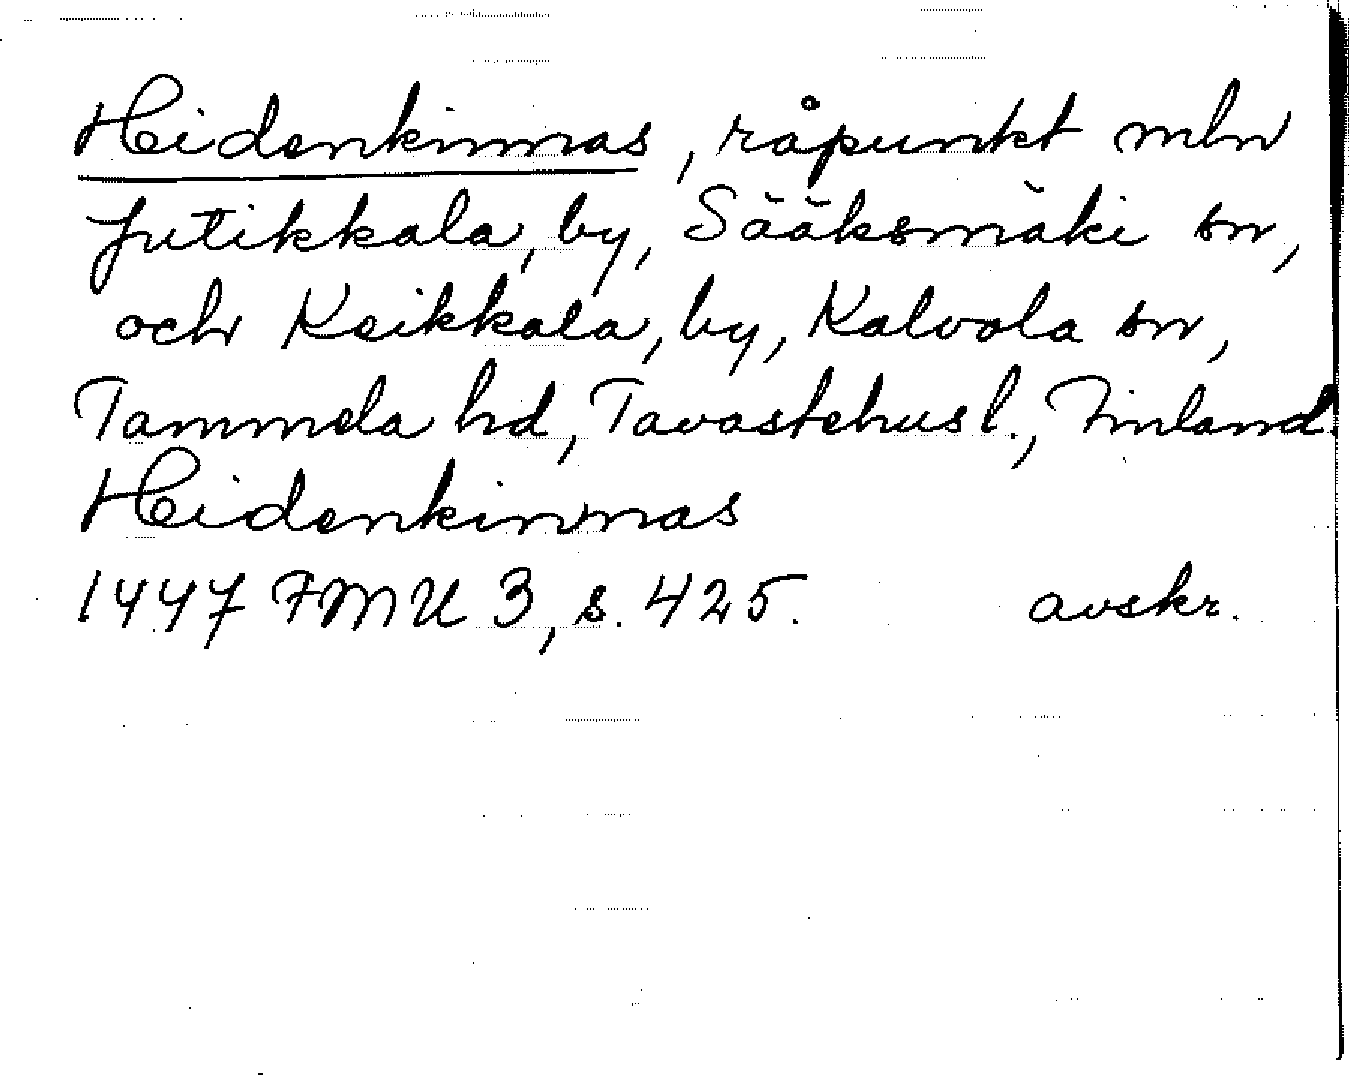 Heidenkinnas, råpunkt mln
Jutikkala, by, Sääksmäki sn,
och Keikkala, by, Kalvola sn,
Tammela hd, Tavastehus l., Finland.
Heidenkinnas
1447 FMU 3, s. 425. avskr.